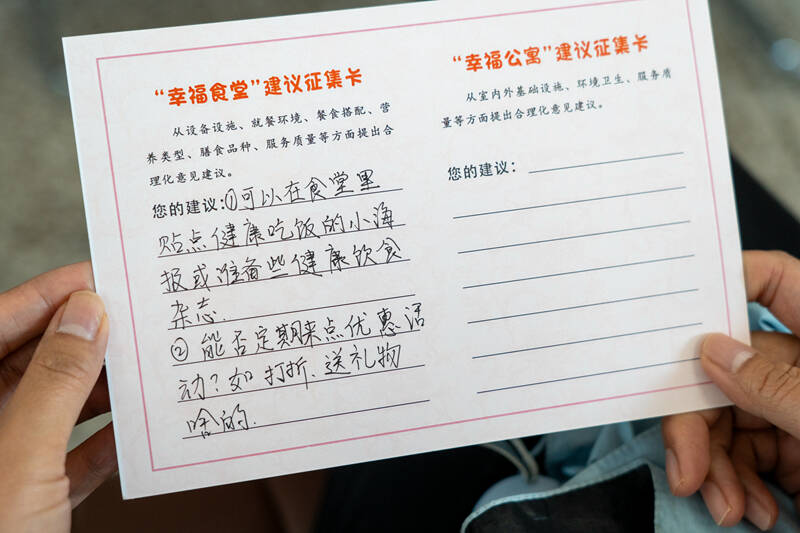 “幸福食堂”建议征集卡
从设备设施、就餐环境、餐食搭配、营
养类型、膳食品种、服务质量等方面提出合
理化意见建议。
您的建议:①可以在食堂里
贴点健康吃饭的小海
报或准备些健康饮食
杂志.
② 能否定期来点优惠活
动?如 打折.送礼物
啥的.
“幸福公寓”建议征集卡
从室内外基础设施、环境卫生、服务质
量等方面提出合理化意见建议。
您的建议: